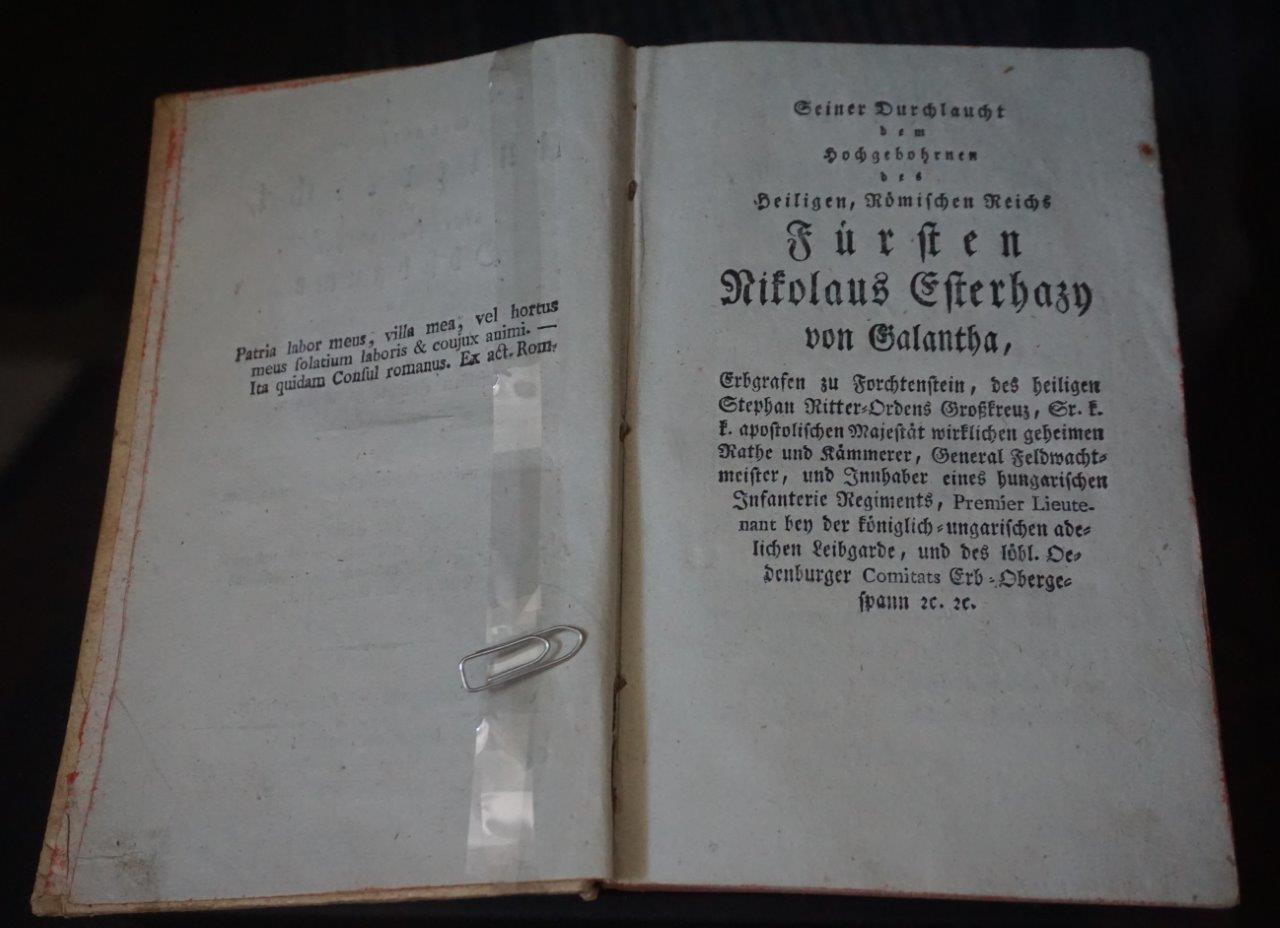 Patria labor meus, villa mea, vel hortus
meus ſolatium laboris & coujux animi. —
Ita quidam Conſul romanus. Ex act. Rom.
Seiner Durchlaucht
dem
Hochgebohrnen
des
Heiligen, Römiſchen Reichs
Fürſten
Nikolaus Eſterhazy
von Galantha,
Erbgrafen zu Forchtenſtein, des heiligen
Stephan Ritter-Ordens Großkreuz, Sr. k.
k. apoſtoliſchen Majeſtät wirklichen geheimen
Rathe und Kämmerer, General Feldwacht-
meiſter, und Innhaber eines hungariſchen
Infanterie Regiments, Premier Lieute-
nant bey der königlich-ungariſchen ade-
lichen Leibgarde, und des löbl. Oe-
denburger Comitats Erb-Oberge-
ſpann ꝛc. ꝛc.